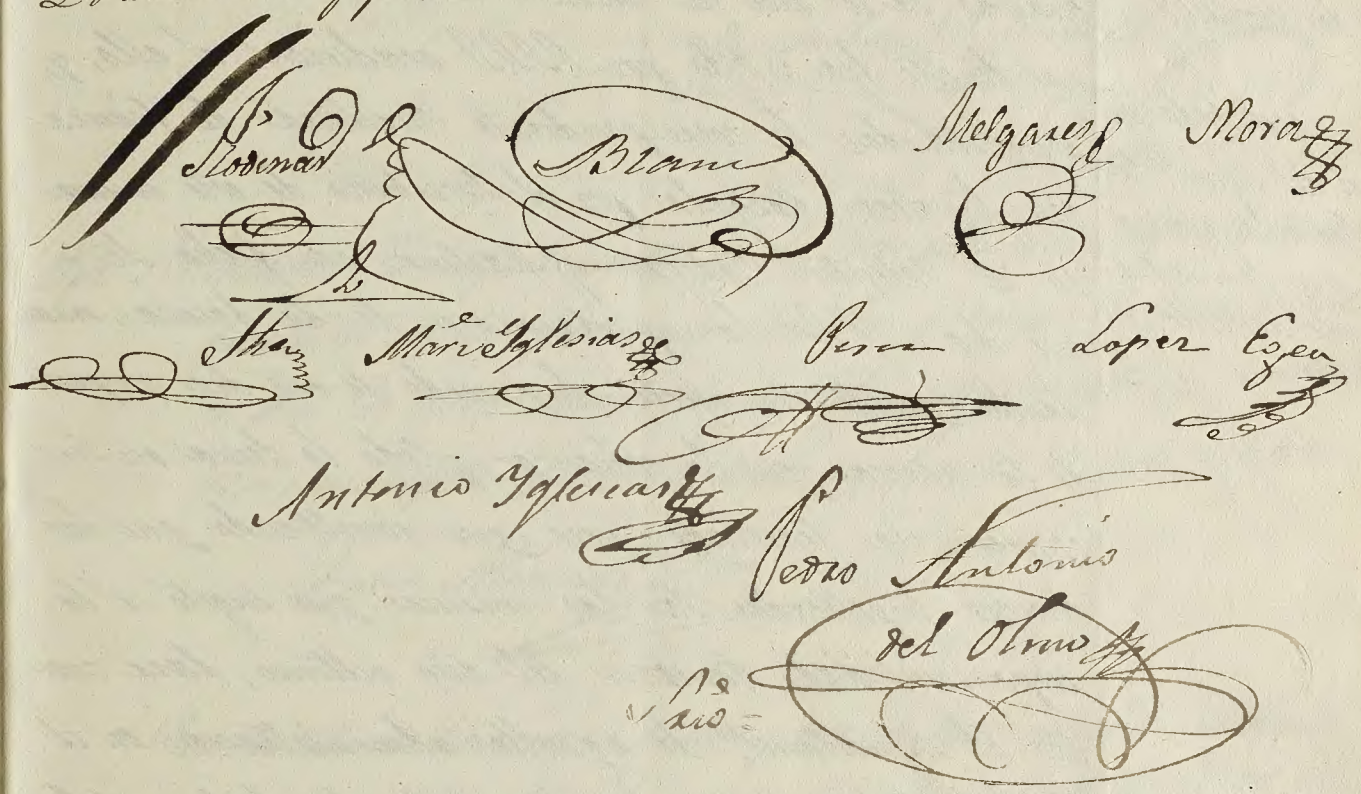 Rodenas Blanc Melgares Mora
Mare Yglesias Perez Lopez Egea
Antonio Yglesias
Pedro Antonio
del Olmo
Srio